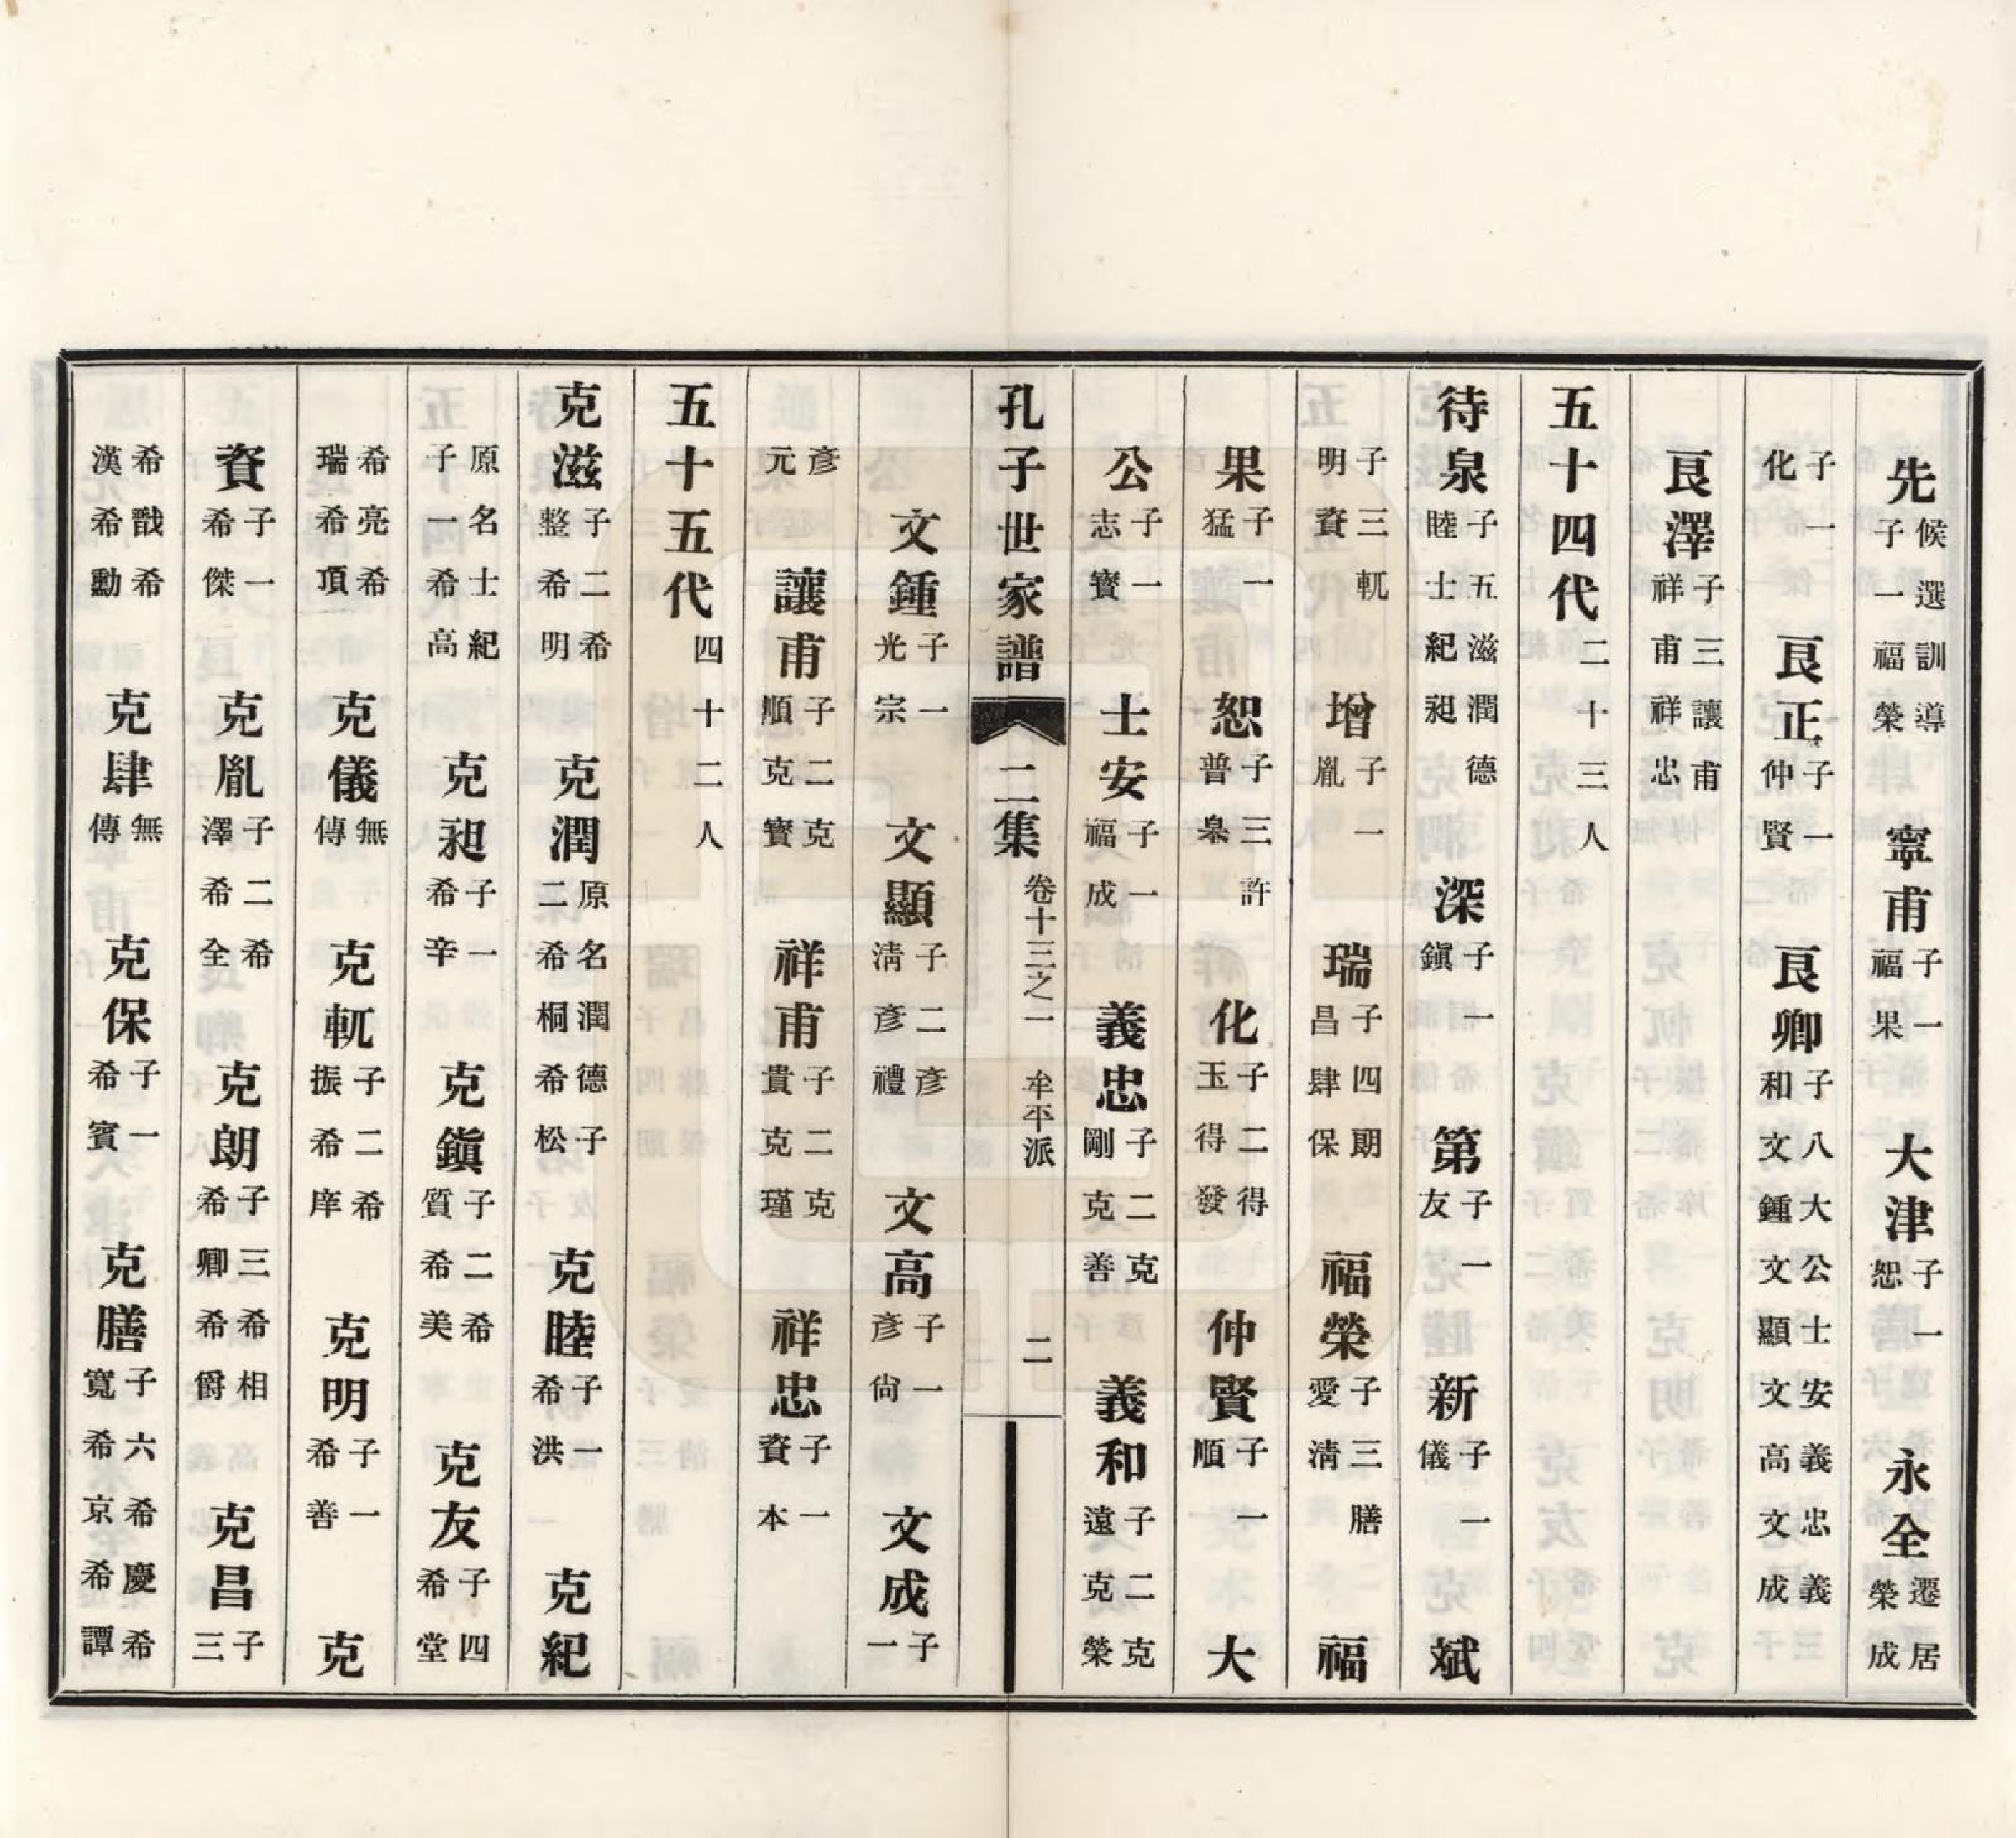 先候選訓導子一福榮　寧甫子一福果　大津子一恕　永全遷居榮成
子一化　良正子一仲賢　良卿子八大公士安義忠義和文鍾文顯文高文成
良澤子三讓甫祥甫祥忠
五十四代二十三人
待泉子五滋潤德睦士紀昶　深子一鎭　第子一友　新子一儀　斌
子三軏明資　增子一胤　瑞子四朗昌肆保　福榮子三膳愛淸　福
果子一猛　恕子三許普皋　化子二得玉得發　仲賢子一順　大
公子一志寶　士安子一福成　義忠子二克剛克善　義和子二克遠克榮
孔子世家譜　二集　卷十三之一　牟平派　二
文鍾子一光宗　文顯子二彥淸彥禮　文高子一彥尙　文成子一
彥元　讓甫子二克順克寶　祥甫子二克貴克瑾　祥忠子一資本
五十五代四十二人
克滋子二希整希明　克潤原名潤德子二希桐希松　克睦子一希洪　克紀
原名士紀子一希高　克昶子一希辛　克鎭子二希質希美　克友子四希堂
希亮希瑞希頊　克儀無傳　克軏子二希振希庠　克明子一希善　克
資子一希傑　克胤子二希澤希全　克朗子三希相希卿希爵　克昌子三
希戩希漢希勳　克肆無傳　克保子一希賓　克膳子六希慶希寬希京希譚